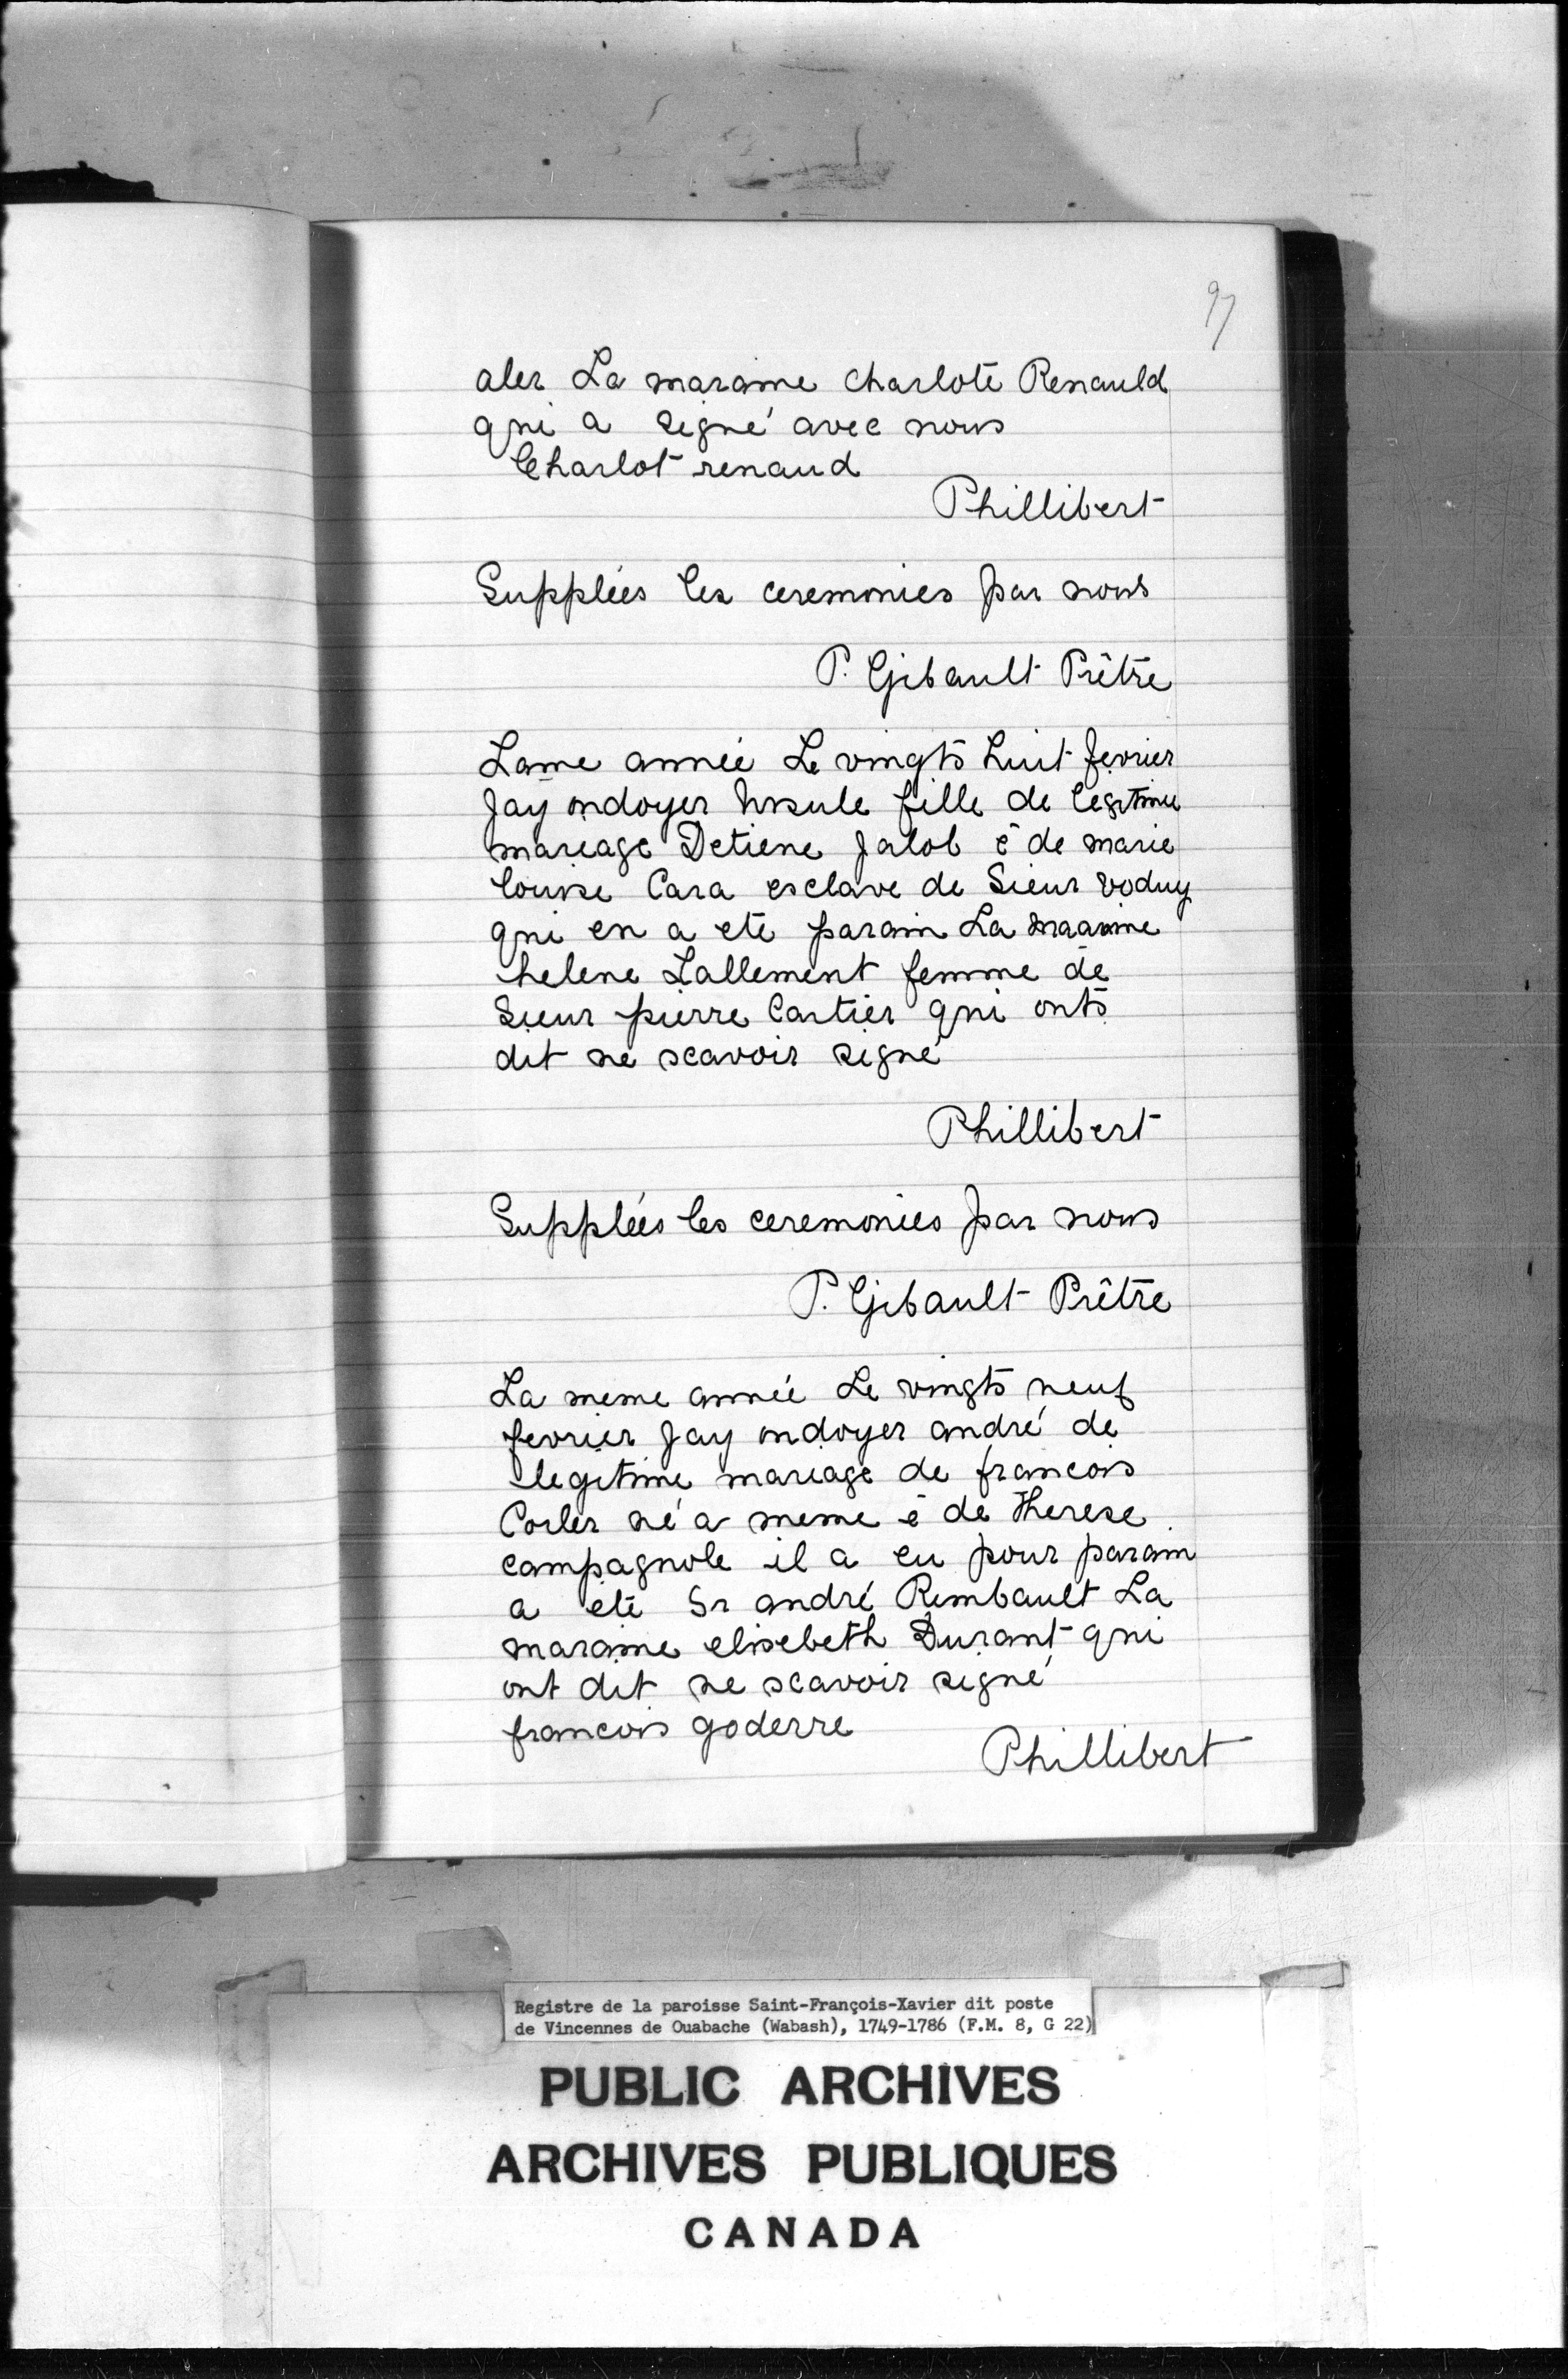 97
aler La maraine charlote Renauld
qui a signé avec nous
Charlot renaud
Phillibert
Supplées les ceremonies par nous
P. Gibault Prêtre
Lame année Le vingts huit fevrier
Jay ondoyer Ursule fille de legitime
mariage Detiene Jalob é de marie
louise Cara esclave de Sieur voduy
qui en a eté parain La maraine
helene Lallement femme de
Sieur pierre Cartier qui onts
dit ne scavoir signé
Phillibert
Supplées les ceremonies par nous
P. Gibault Prêtre
La meme année Le vingts neuf
fevrier Jay ondoyer andré de
legitime mariage de francois
Corler né a meme é de therese
campagnole il a eu pour parain
a eté Sr andré Rimbault La
maraine elisebeth Durant qui
ont dit ne scavoir signé
francois goderre
Phillibert
Registre de la paroisse Saint-François-Xavier dit poste
de Vincennes de Ouabache (Wabash), 1749-1786 (F.M. 8, G 22)
PUBLIC ARCHIVES
ARCHIVES PUBLIQUES
CANADA